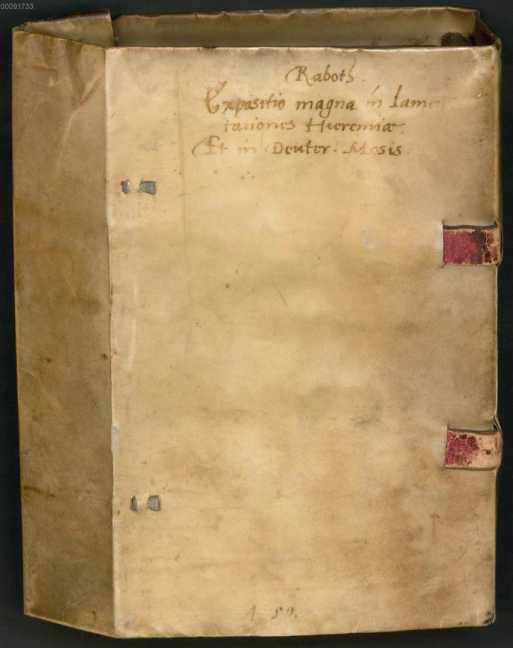 00091733
Raboth.
Expositio magna in Lame
tationes Hieremiæ.
Et in Deuter. Mosis.
1 50.